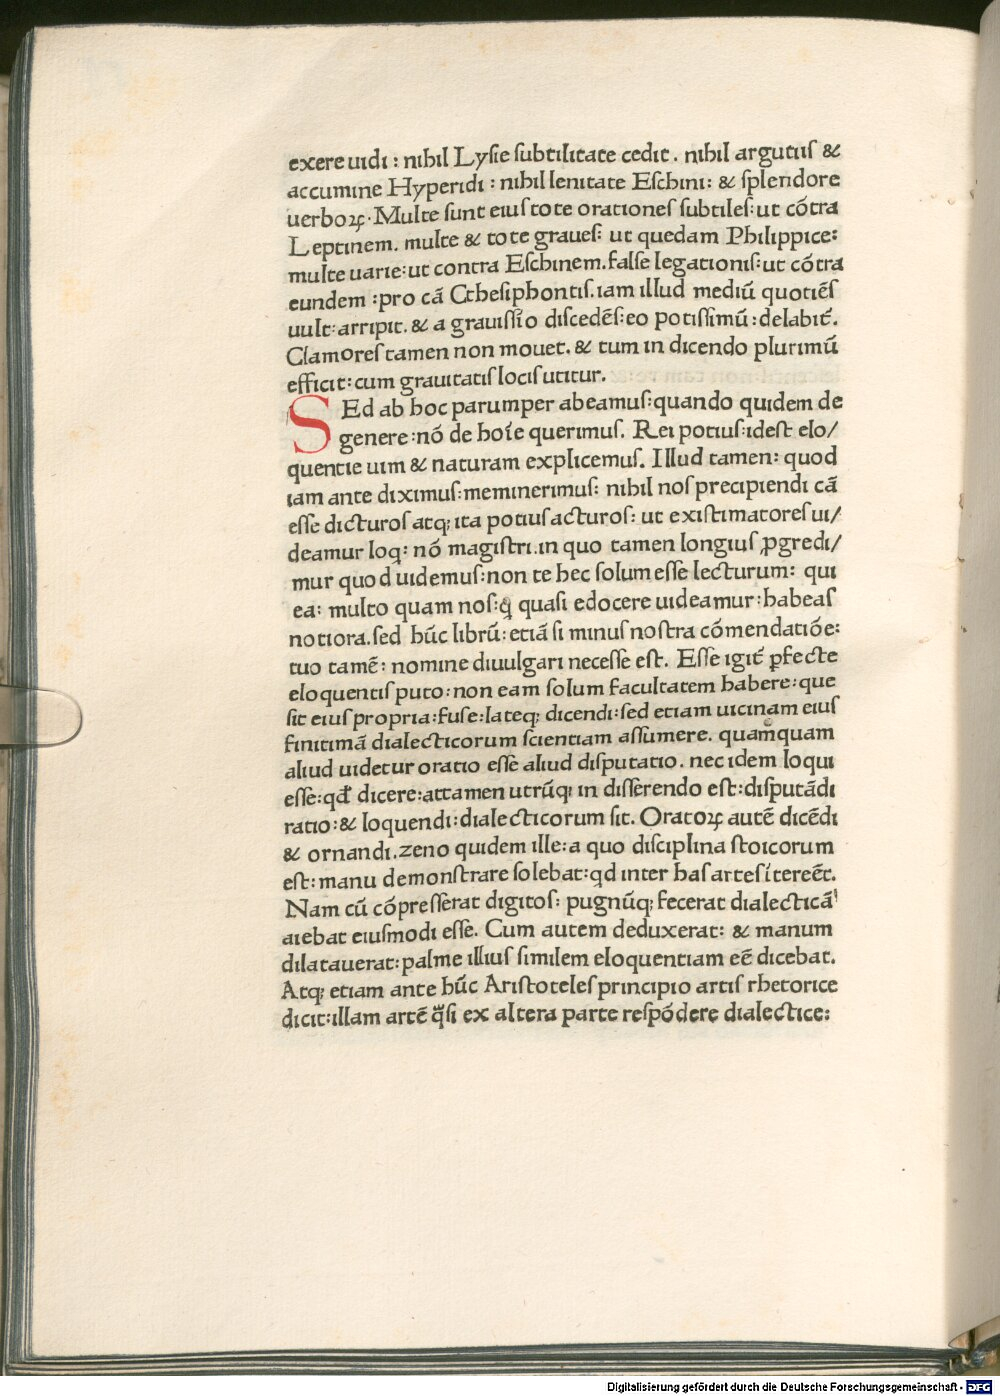 exere uidi : nihil Lysie subtilitate cedit . nihil argutiis &
accumine Hyperidi : nihil lenitate Eschini: & splendore
uerboꝝ. Multe sunt eius tote orationes subtiles: ut cōtra
Leptinem. multe & tote graues: ut quedam Philippice:
multe uarie: ut contra Eschinem. false legationis: ut cōtra
eundem : pro cā Cthesiphontis. iam illud mediū quotiēs
uult: arripit. & a grauissīo discedēs: eo potissimū: delabit̄.
Clamores tamen non mouet. & tum in dicendo plurimū
efficit: cum grauitatis locis utitur.
SEd ab hoc parumper abeamus: quando quidem de
genere: nō de hoīe querimus. Rei potius: idest elo/
quentie uim & naturam explicemus. Illud tamen: quod
iam ante diximus: meminerimus: nihil nos precipiendi cā
esse dicturos atq; ita potius acturos: ut existimatores ui/
deamur loq: nō magistri. in quo tamen longius ꝓgredi/
mur quod uidemus: non te hec solum esse lecturum: qui
ea: multo quam nos: q̄ quasi edocere uideamur: habeas
notiora. sed hūc librū: etiā si minus nostra cōmendatiōe:
tuo tamē: nomine diuulgari necesse est. Esse igit̄ ꝑfecte
eloquentis puto: non eam solum facultatem habere: que
sit eius propria: fuse: lateq; dicendi: sed etiam uicinam eius
finitimā dialecticorum scientiam assumere. quamquam
aliud uidetur oratio esse aliud disputatio. nec idem loqui
esse: qđ dicere: attamen utrūq; in disserendo est: disputādi
ratio: & loquendi: dialecticorum sit. Oratoꝝ autē dicēdi
& ornandi. zeno quidem ille: a quo disciplina stoicorum
est: manu demonstrare solebat: qd inter has artes ītereēt.
Nam cū cōpresserat digitos: pugnūq; fecerat dialecticā
aiebat eiusmodi esse. Cum autem deduxerat: & manum
dilatauerat: palme illius similem eloquentiam eē dicebat.
Atq; etiam ante hūc Aristoteles principio artis rhetorice
dicit: illam artē q̄si ex altera parte respōdere dialectice:
Digitalisierung gefördert durch die Deutsche Forschungsgemeinschaft - DFG